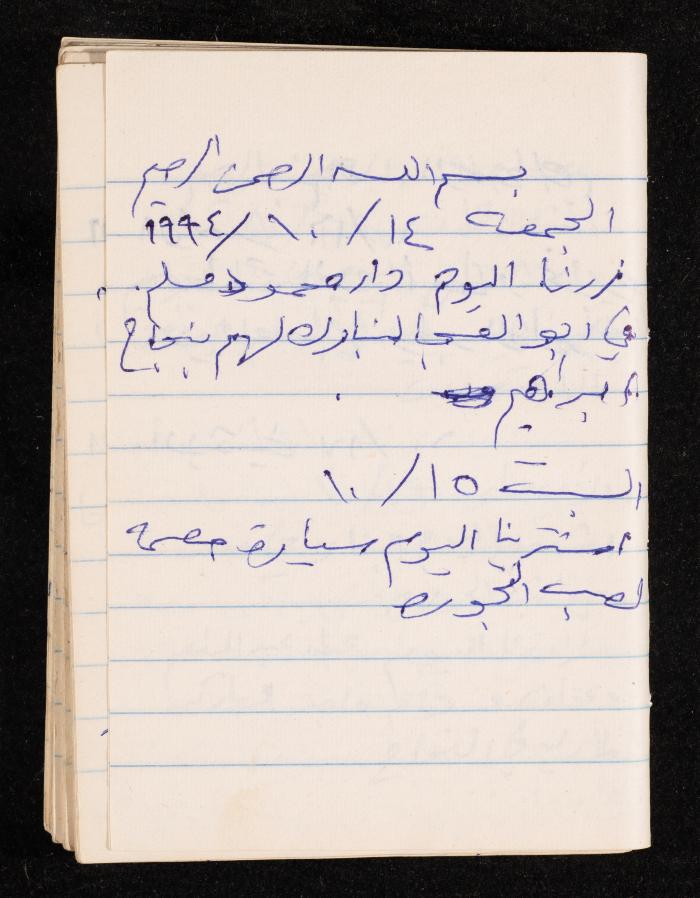 بسم الله الرحمن الرحيم
الجمعة ١٤/١٠/١٩٩٤
زرنا اليوم دار محمود مسلم
في ابو القسم لنبارك لهم بنجاح
ابراهيم
السبت ١٥/١٠
اشترينا اليوم سيارة حصمة
لصب الجورة